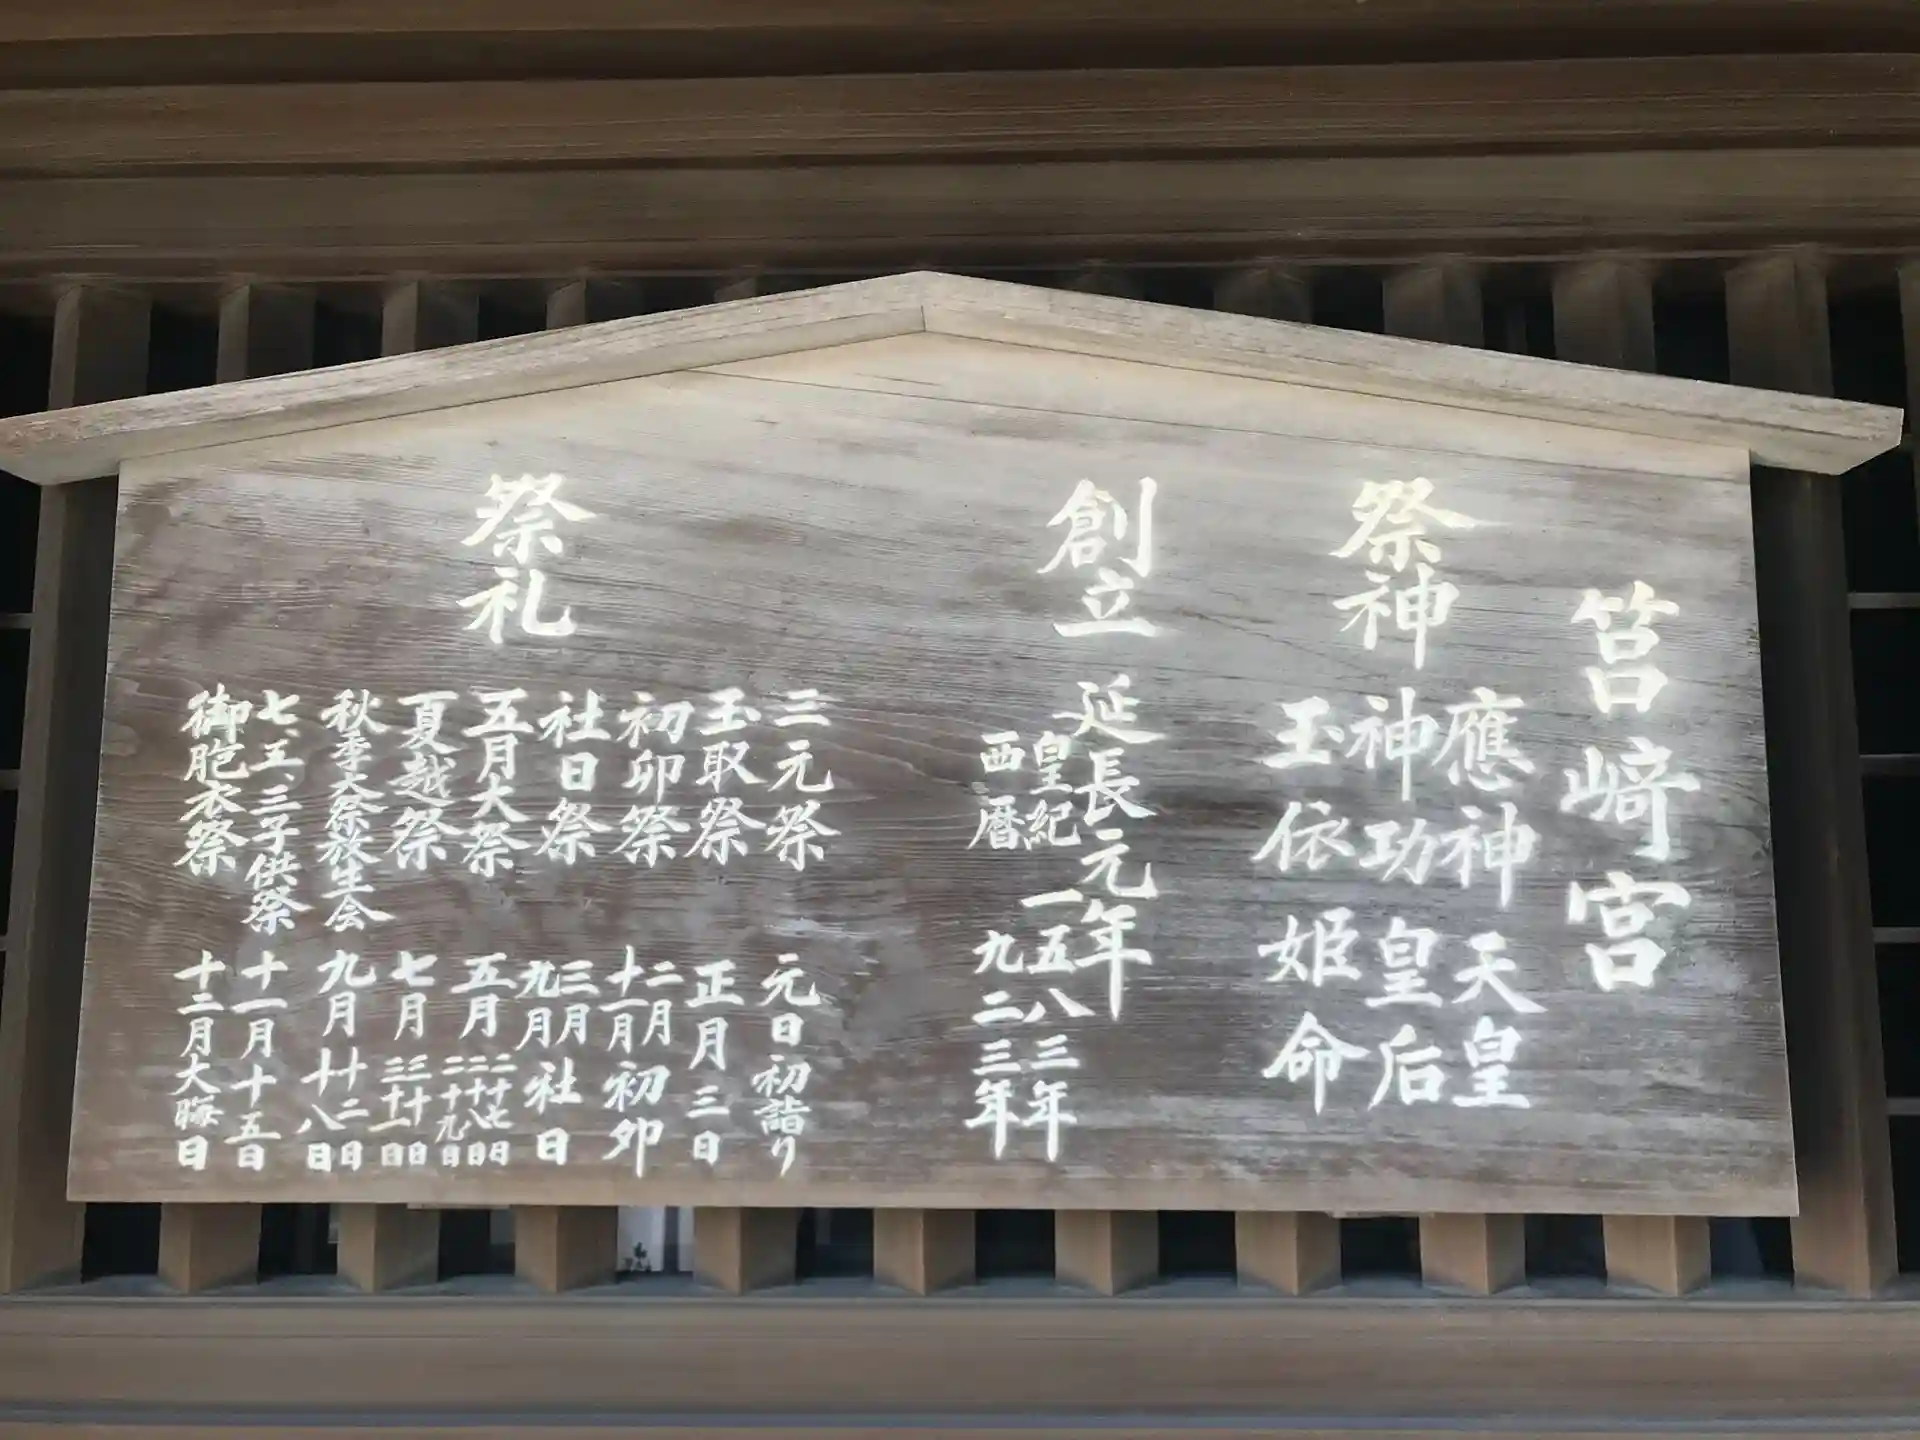 筥崎宮
祭神
應神天皇
神功皇后
玉依姫命
創立
延長元年
皇紀 一五八三年
西暦 九二三年
祭礼
三元祭 元日初詣り
玉取祭 正月三日
初卯祭 二月 十一月 初卯
社日祭 三月 九月 社日
五月大祭 五月 二十七日 二十八日 二十九日
夏越祭 七月 三十日 三十一日
秋季大祭放生会 九月 十二日 十八日
七、五、三子供祭 十一月十五日
御胞衣祭 十二月大晦日